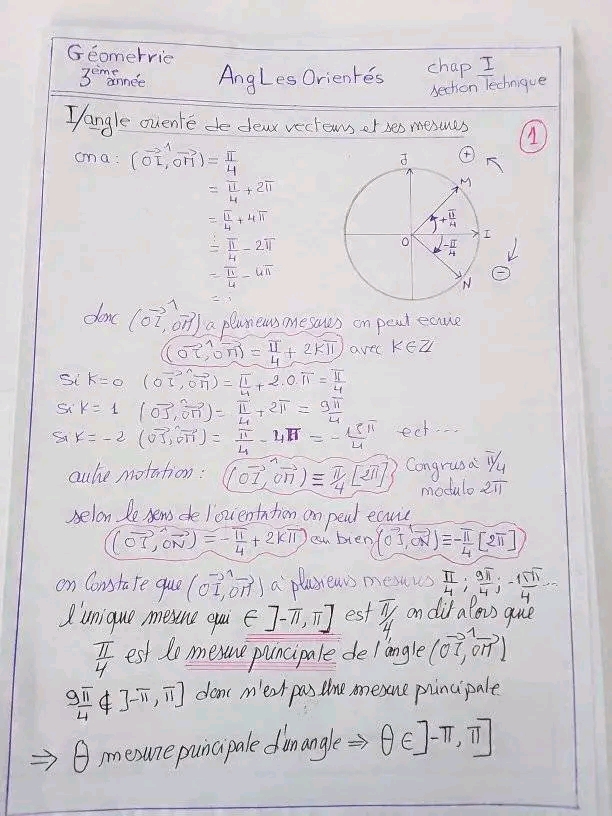 Géometrie
3ème année
AngLes Orientés
chap I
section Technique
I/angle orienté de deux vecteurs et ses mesures
1
on a : (OI→,^OM→) = π/4
= π/4 + 2π
= π/4 + 4π
= π/4 - 2π
= π/4 - 4π
= :
J
+
M
+π/4
O
I
-π/4
N
-
donc (OI→,^OM→) a plusieurs mesures on peut ecrire
(OI→,^OM→) = π/4 + 2Kπ avec K∈ℤ
Si K=0 (OI→,^OM→) = π/4 + 2.0.π = π/4
Si K=1 (OI→,^OM→) = π/4 + 2π = 9π/4
Si K=-2 (OI→,^OM→) = π/4 - 4π = -15π/4 ect ...
autre notation : (OI→,^OM→) ≡ π/4 [2π] Congrus à π/4
modulo 2π
selon le sens de l'orientation on peut ecrire
(OI→,^ON→) = -π/4 + 2Kπ ou bien (OI→,^ON→) ≡ -π/4 [2π]
on Constate que (OI→,^OM→) a plusieurs mesures π/4 ; 9π/4 ; -15π/4 ...
l'unique mesure qui ∈ ]-π, π] est π/4, on dit alors que
π/4 est le mesure principale de l'angle (OI→,^OM→)
9π/4 ∉ ]-π, π] donc n'est pas une mesure principale
⇒ θ mesure principale d'un angle ⇒ θ ∈ ]-π, π]